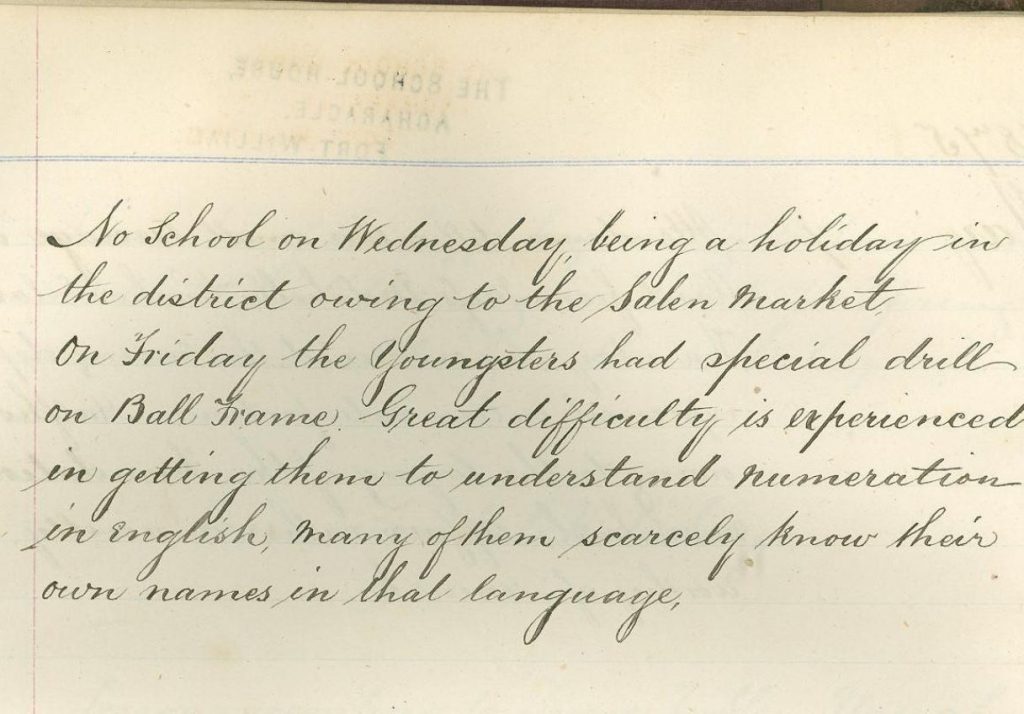 THE SCHOOL HOUSE,
ACHARACLE.
FORT WILLIAM
No School on Wednesday, being a holiday in
the district owing to the Salen Market.
On Friday the Youngsters had special drill
on Ball Frame. Great difficulty is experienced
in getting them to understand numeration
in English, many of them scarcely know their
own names in that language,